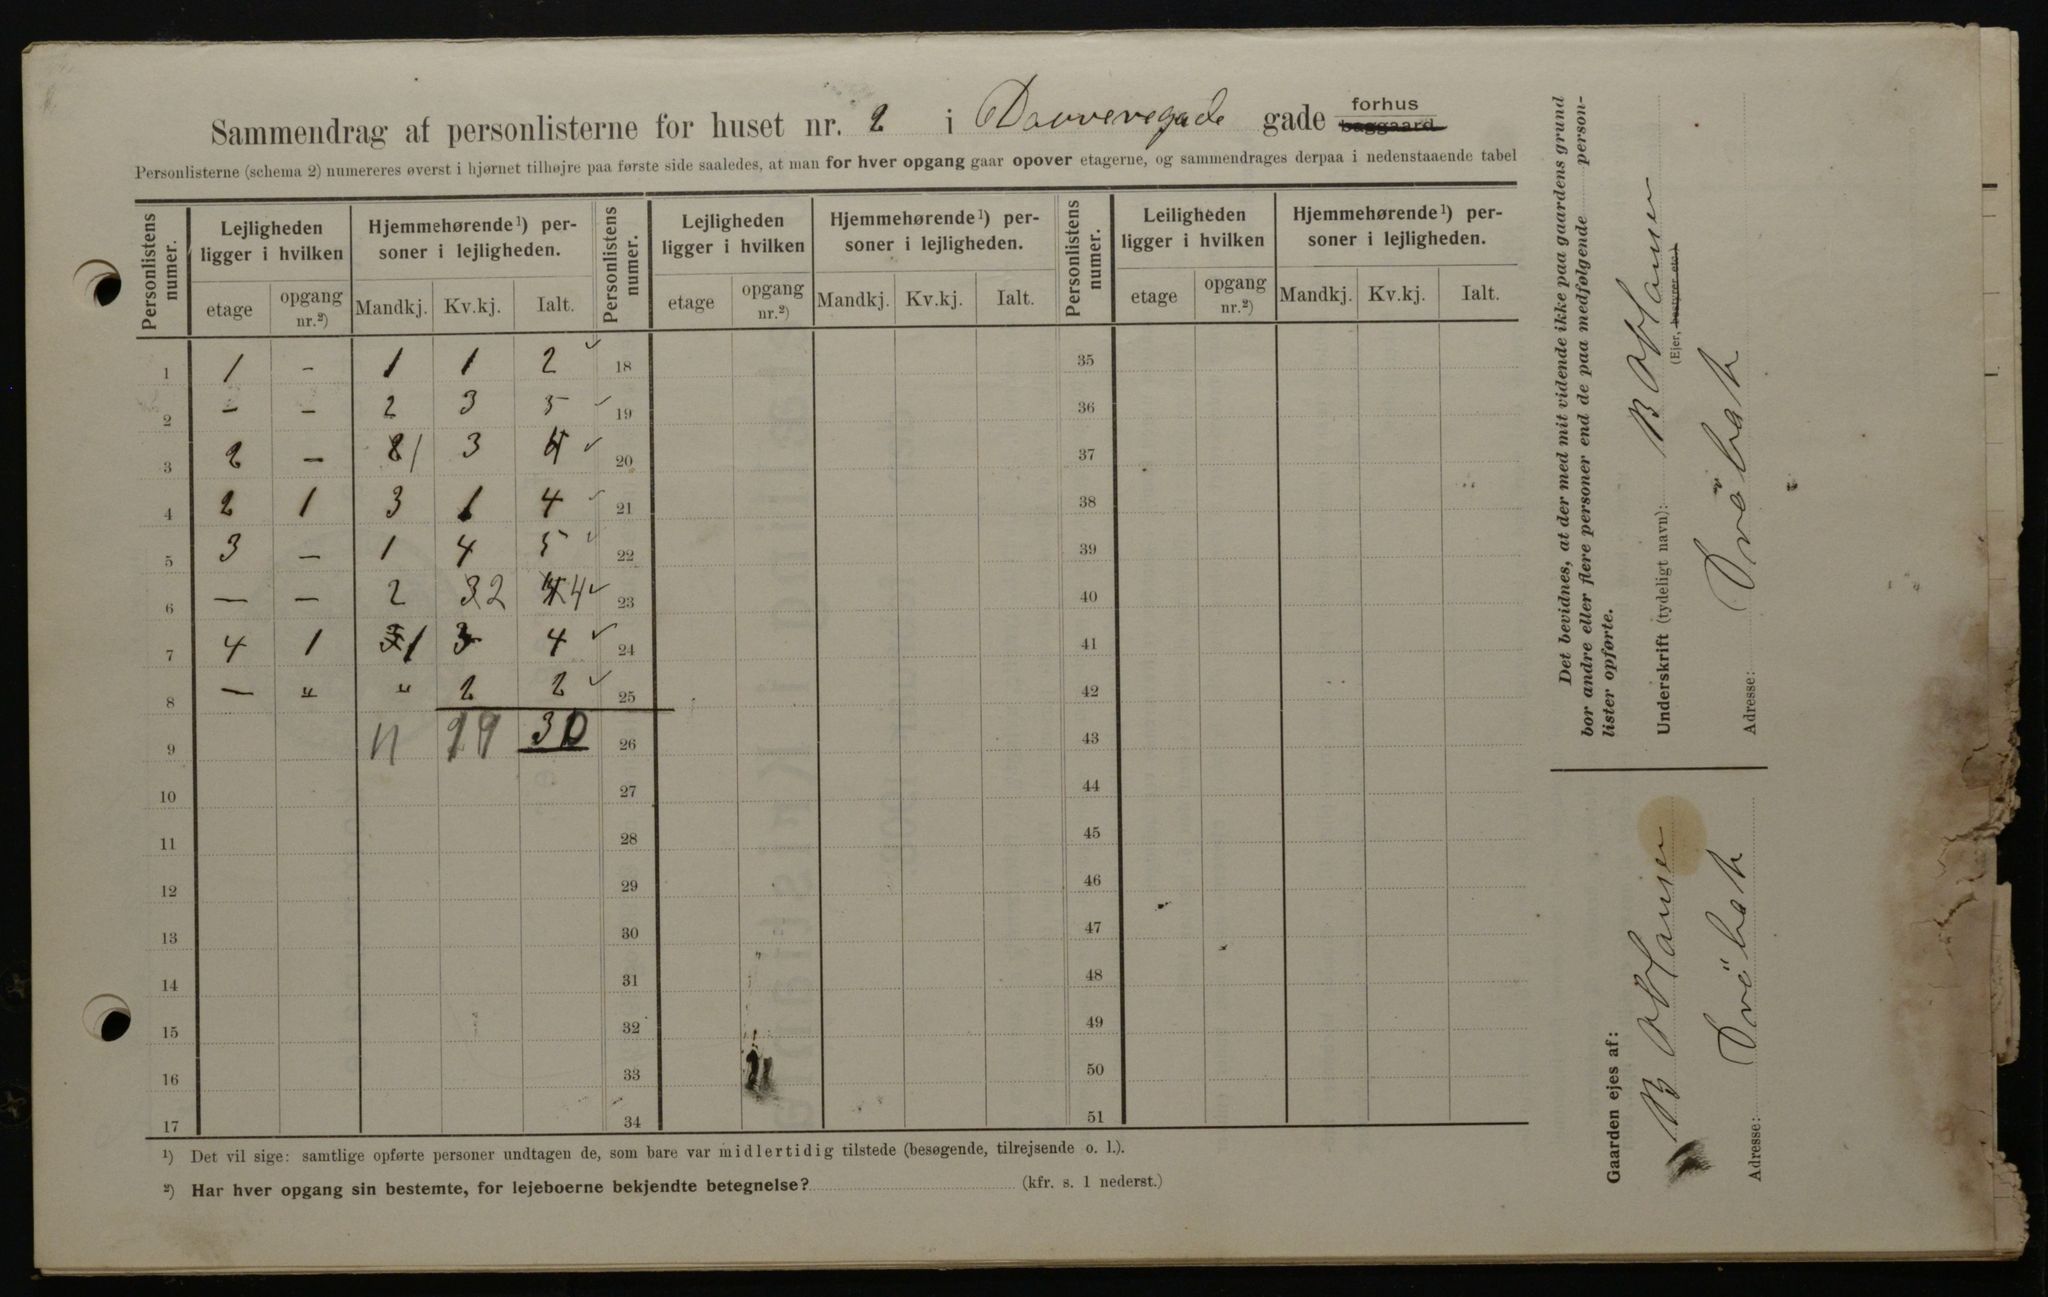 Sammendrag af personlisterne for huset nr. 2 i Dovregade gade forhus baggaard
Personlisterne (schema 2) numereres øverst i hjørnet tilhøjre paa første side saaledes, at man for hver opgang gaar opover etagerne, og sammendrages derpaa i nedenstaaende tabel
Personlistens numer. Lejligheden ligger i hvilken Hjemmehørende¹) personer i lejligheden. Personlistens numer. Lejligheden ligger i hvilken Hjemmehørende¹) personer i lejligheden. Personlistens numer. Leiligheden ligger i hvilken Hjemmehørende¹) personer i lejligheden.
etage opgang nr.²) Mandkj. Kv.kj. Ialt. etage opgang nr.²) Mandkj. Kv.kj. Ialt. etage opgang nr.²) Mandkj. Kv.kj. Ialt.
1 1 – 1 1 2 18 35
2 – – 2 3 5 19 36
3 2 – 1 3 4 20 37
4 2 1 3 1 4 21 38
5 3 – 1 4 5 22 39
6 – – 2 3 2 4 23 40
7 4 1 1 3 4 24 41
8 – " " 2 2 25 42
9 11 19 30 26 43
10 27 44
11 28 45
12 29 46
13 30 47
14 31 48
15 32 49
16 33 50
17 34 51
¹) Det vil sige: samtlige opførte personer undtagen de, som bare var midlertidig tilstede (besøgende, tilrejsende o. l.).
²) Har hver opgang sin bestemte, for lejeboerne bekjendte betegnelse? (kfr. s. 1 nederst.)
Det bevidnes, at der med mit vidende ikke paa gaardens grund
bor andre eller flere personer end de paa medfølgende person-
lister opførte.
Underskrift (tydeligt navn): B
(Ejer, bestyrer etc.)
Adresse: Dröbak
Gaarden ejes af:
B
Adresse: Dröbak